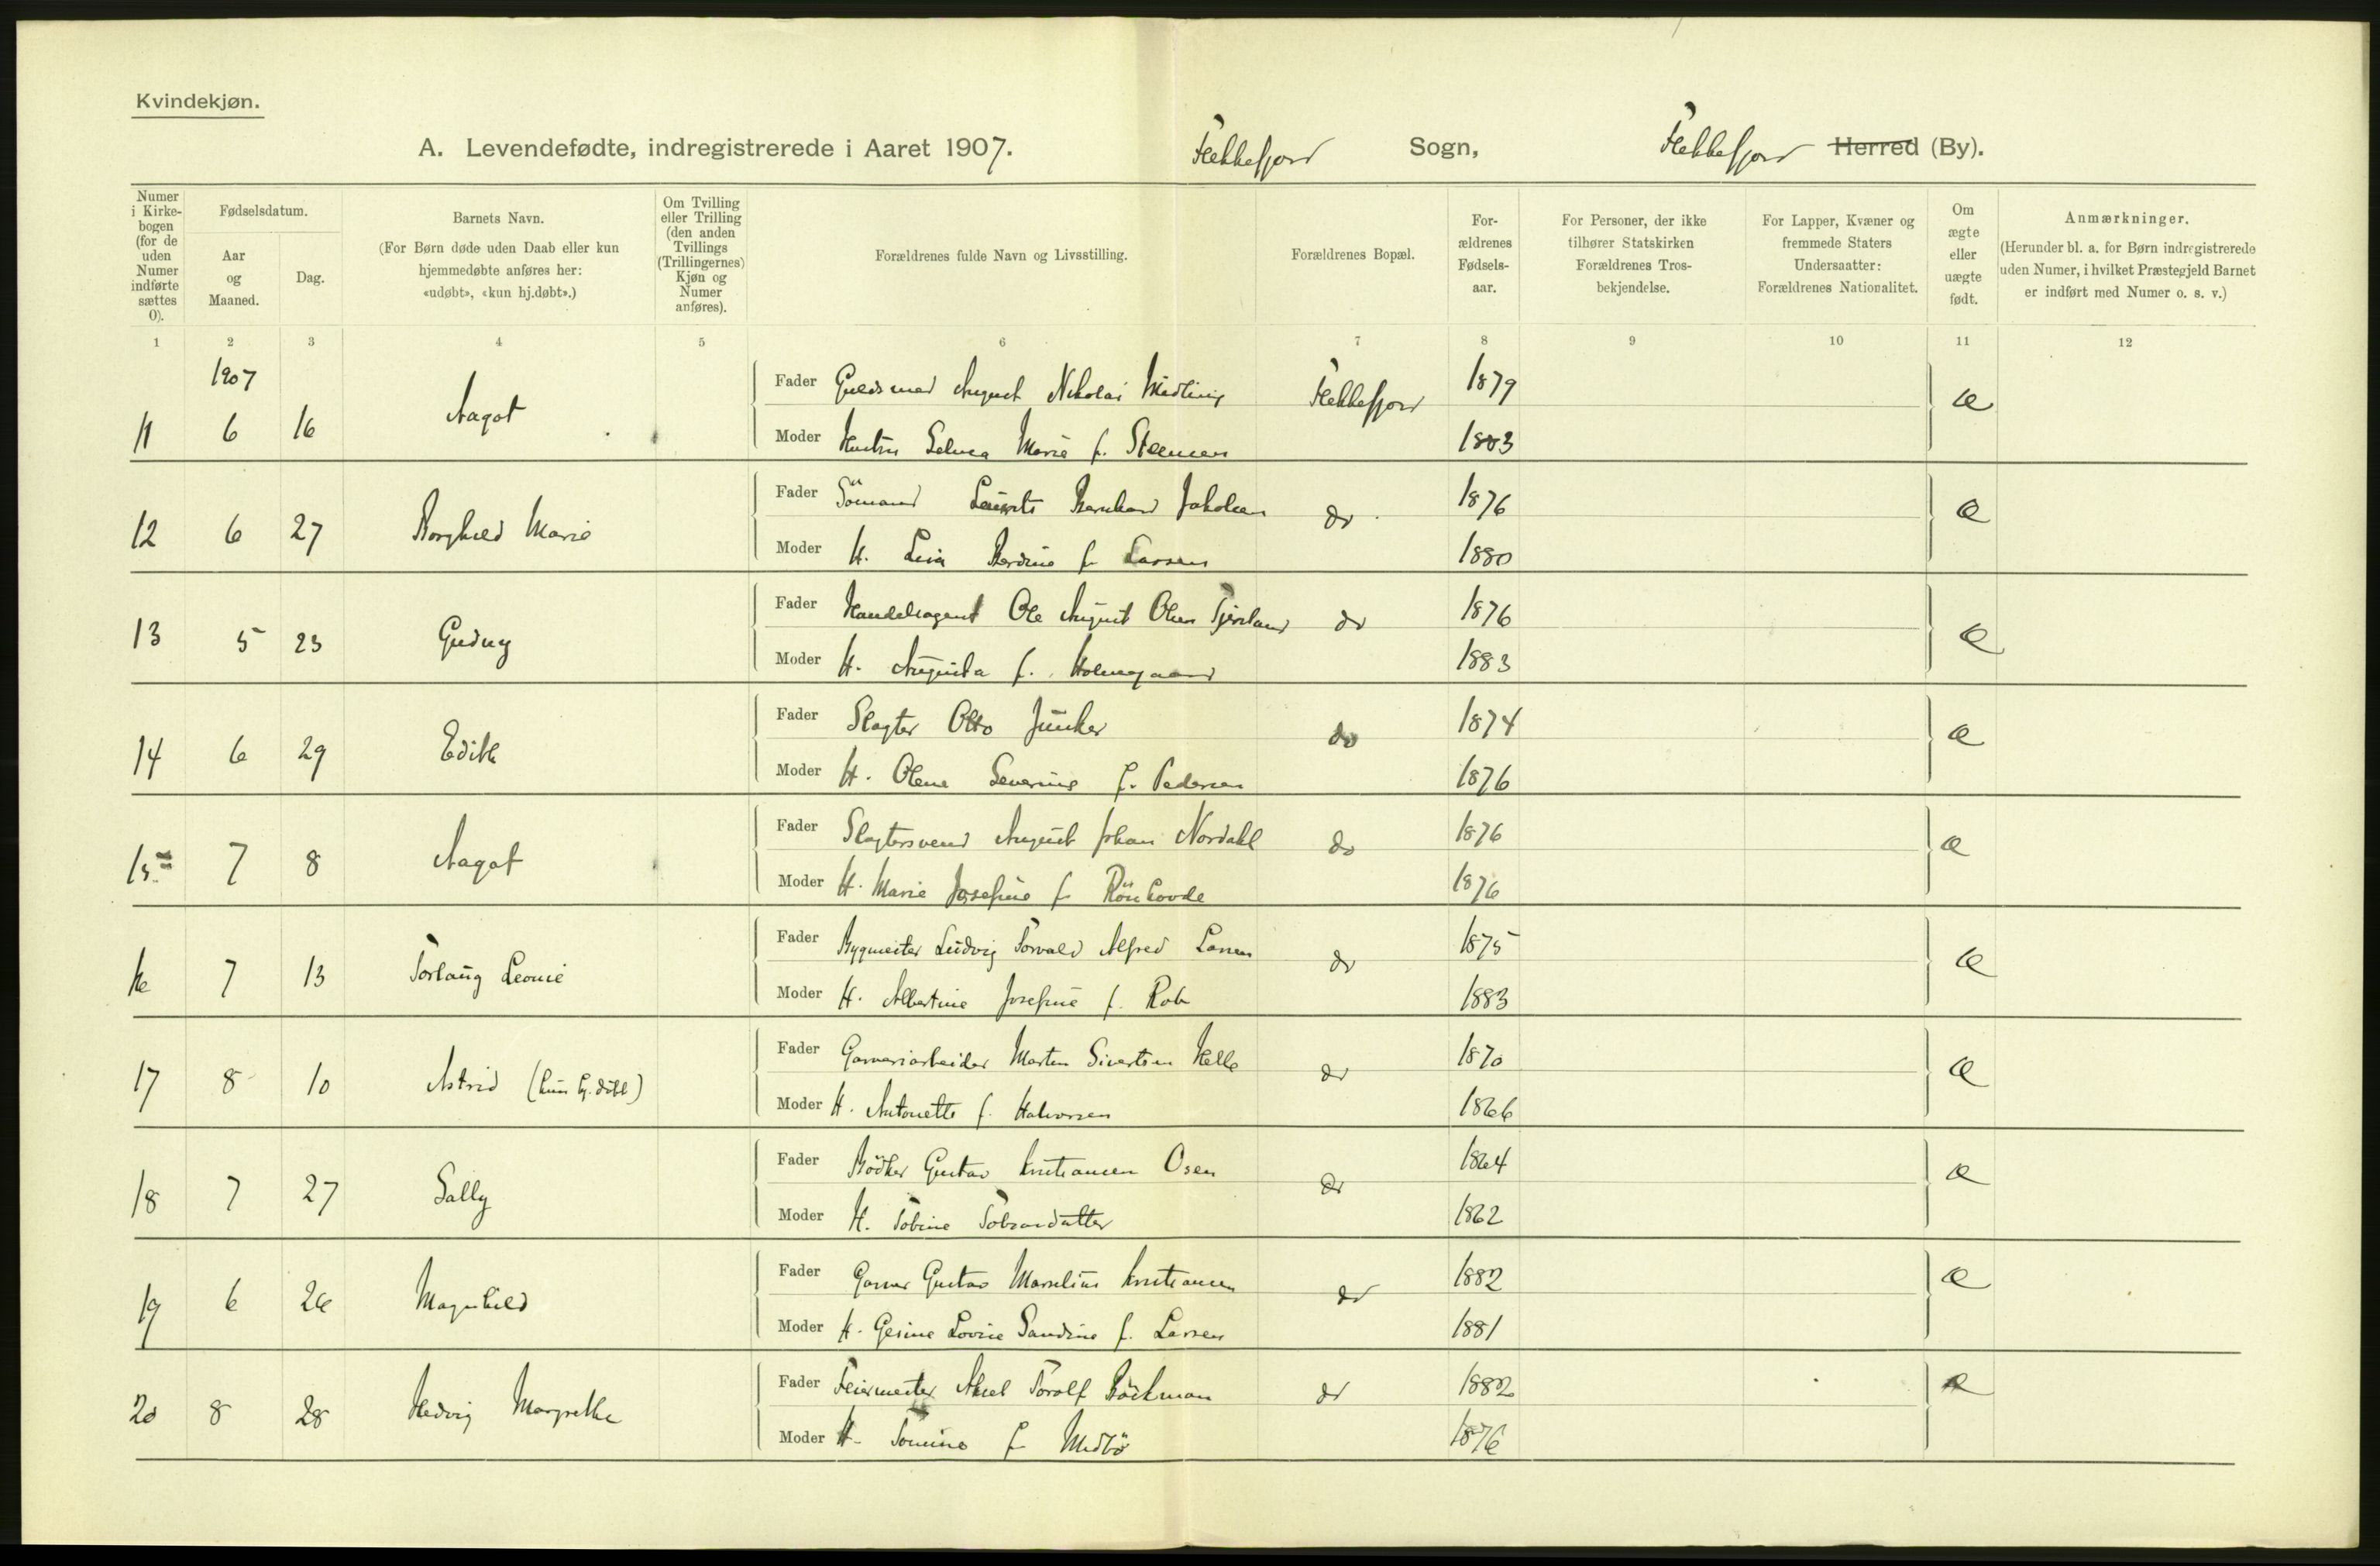 Kvindekjøn.
A. Levendefødte, indregistrerede i Aaret 1907. Flekkefjord Sogn, Flekkefjord Herred (By).
Numer i Kirke-bogen (for de uden Numer indførte sættes 0).
Fødselsdatum.
Aar og Maaned.
Dag.
Barnets Navn.
(For Børn døde uden Daab eller kun hjemmedøbte anføres her: «udøbt», «kun hj.døbt».)
Om Tvilling eller Trilling (den anden Tvillings (Trillingernes) Kjøn og Numer anføres).
Forældrenes fulde Navn og Livsstilling.
Forældrenes Bopæl.
For-ældrenes Fødsels-aar.
For Personer, der ikke tilhører Statskirken Forældrenes Tros-bekjendelse.
For Lapper, Kvæner og fremmede Staters Undersaatter: Forældrenes Nationalitet.
Om ægte eller uægte født.
Anmærkninger.
(Herunder bl. a. for Børn indregistrerede uden Numer, i hvilket Præstegjeld Barnet er indført med Numer o. s. v.)
1 2 3 4 5 6 7 8 9 10 11 12
1907
11 6 16 Aagot
Fader Guldsmed August Nikolai Flekkefjord 1879 æ
Moder Hustru Selma Marie f. Steensen 1883
12 6 27 Borghild Marie
Fader Sömand Laurits Bernhard Jakobsen do 1876 æ
Moder H. Lina Berdine f. Larsen 1880
13 5 23 Gudny
Fader Handelsagent Ole August Olsen do 1876 æ
Moder H. Augusta f. Holmegaard 1883
14 6 29 Edith
Fader Slagter Otto Junker do 1874 æ
Moder H. Olene Severine f. Pedersen 1876
15 7 8 Aagot
Fader Slagtersvend August Johan Nordahl do 1876 æ
Moder H. Marie Josefine f. 1876
16 7 13 Torlaug Leonie
Fader Bygmester Ludvig Torvald Alfred Larsen do 1875 æ
Moder H. Albertine Josefine f. Rob 1883
17 8 10 Astrid (kun hj. döbt)
Fader Garveriarbeider Martin Sivertsen Helle do 1870 æ
Moder H. Antonette f. Halvorsen 1866
18 7 27 Sally
Fader Bödker Gustav Kristiansen Osen do 1864 æ
Moder H. Tobine 1862
19 6 26 Magnhild
Fader Garver Gustav Marselius Kristiansen do 1882 æ
Moder H. Gesine Lovise Sandine f. Larsen 1881
20 8 28 Hedvig Margrethe
Fader Feiermester Aksel Torolf Böckman do 1882 æ
Moder H. Tomine f. Midbö 1876